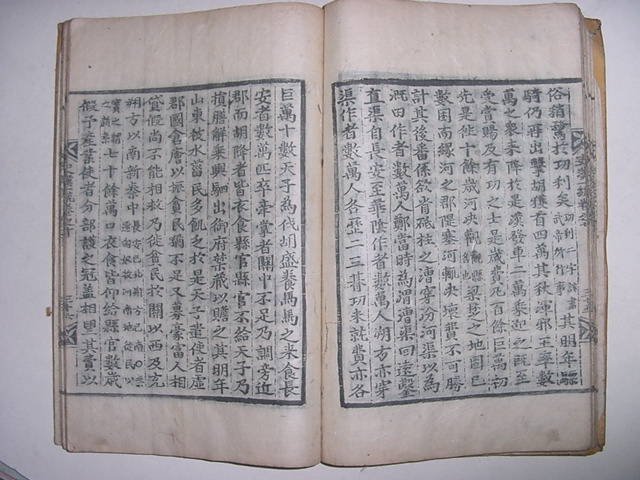 俗稍騖於功利矣其明年驃
騎仍再出擊胡獲首四萬其秋渾邪王率數
萬之衆來降於是漢發車二萬乘迎之既至
受賞賜及有功之士是歲費凡百餘巨萬初
先是往十餘歲河決觀梁楚之地固已
數困而緣河之郡隄塞河輒決壞費不可勝
計其後番係欲省砥柱之漕穿汾河渠以為
溉田作者數萬人鄭當時為渭漕渠回遠鑿
直渠自長安至華陰作者數萬人朔方亦穿
渠作者數萬人各歷二三朞功未就費亦各
巨萬十數天子為伐胡盛養馬馬之來食長
安者數萬匹卒牽掌者關中不足乃調旁近
郡而胡降者皆衣食縣官縣官不給天子乃
損膳解乘輿駟出御府禁藏以贍之其明年
山東被水菑民多飢乏於是天子遣使者虛
郡國倉廥以振貧民猶不足又募豪富人相
貸假尚不能相救乃徙貧民於關以西及充
朔方以南新秦中
七十餘萬口衣食皆仰給縣官數歲
假予產業使者分部護之冠蓋相望其費以